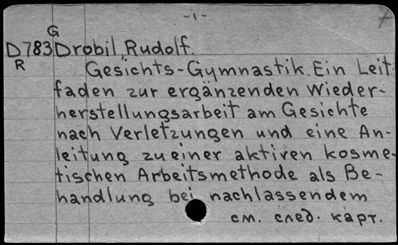 -1-
G
D783 Drobil, Rudolf.
R
Gesichts-Gymnastik. Ein Leit-
faden zur ergänzenden Wieder-
herstellungsarbeit am Gesichte
nach Verletzungen und eine An-
leitung zu einer aktiven kosme-
tischen Arbeitsmethode als Be-
handlung bei nachlassendem
см. след. карт.